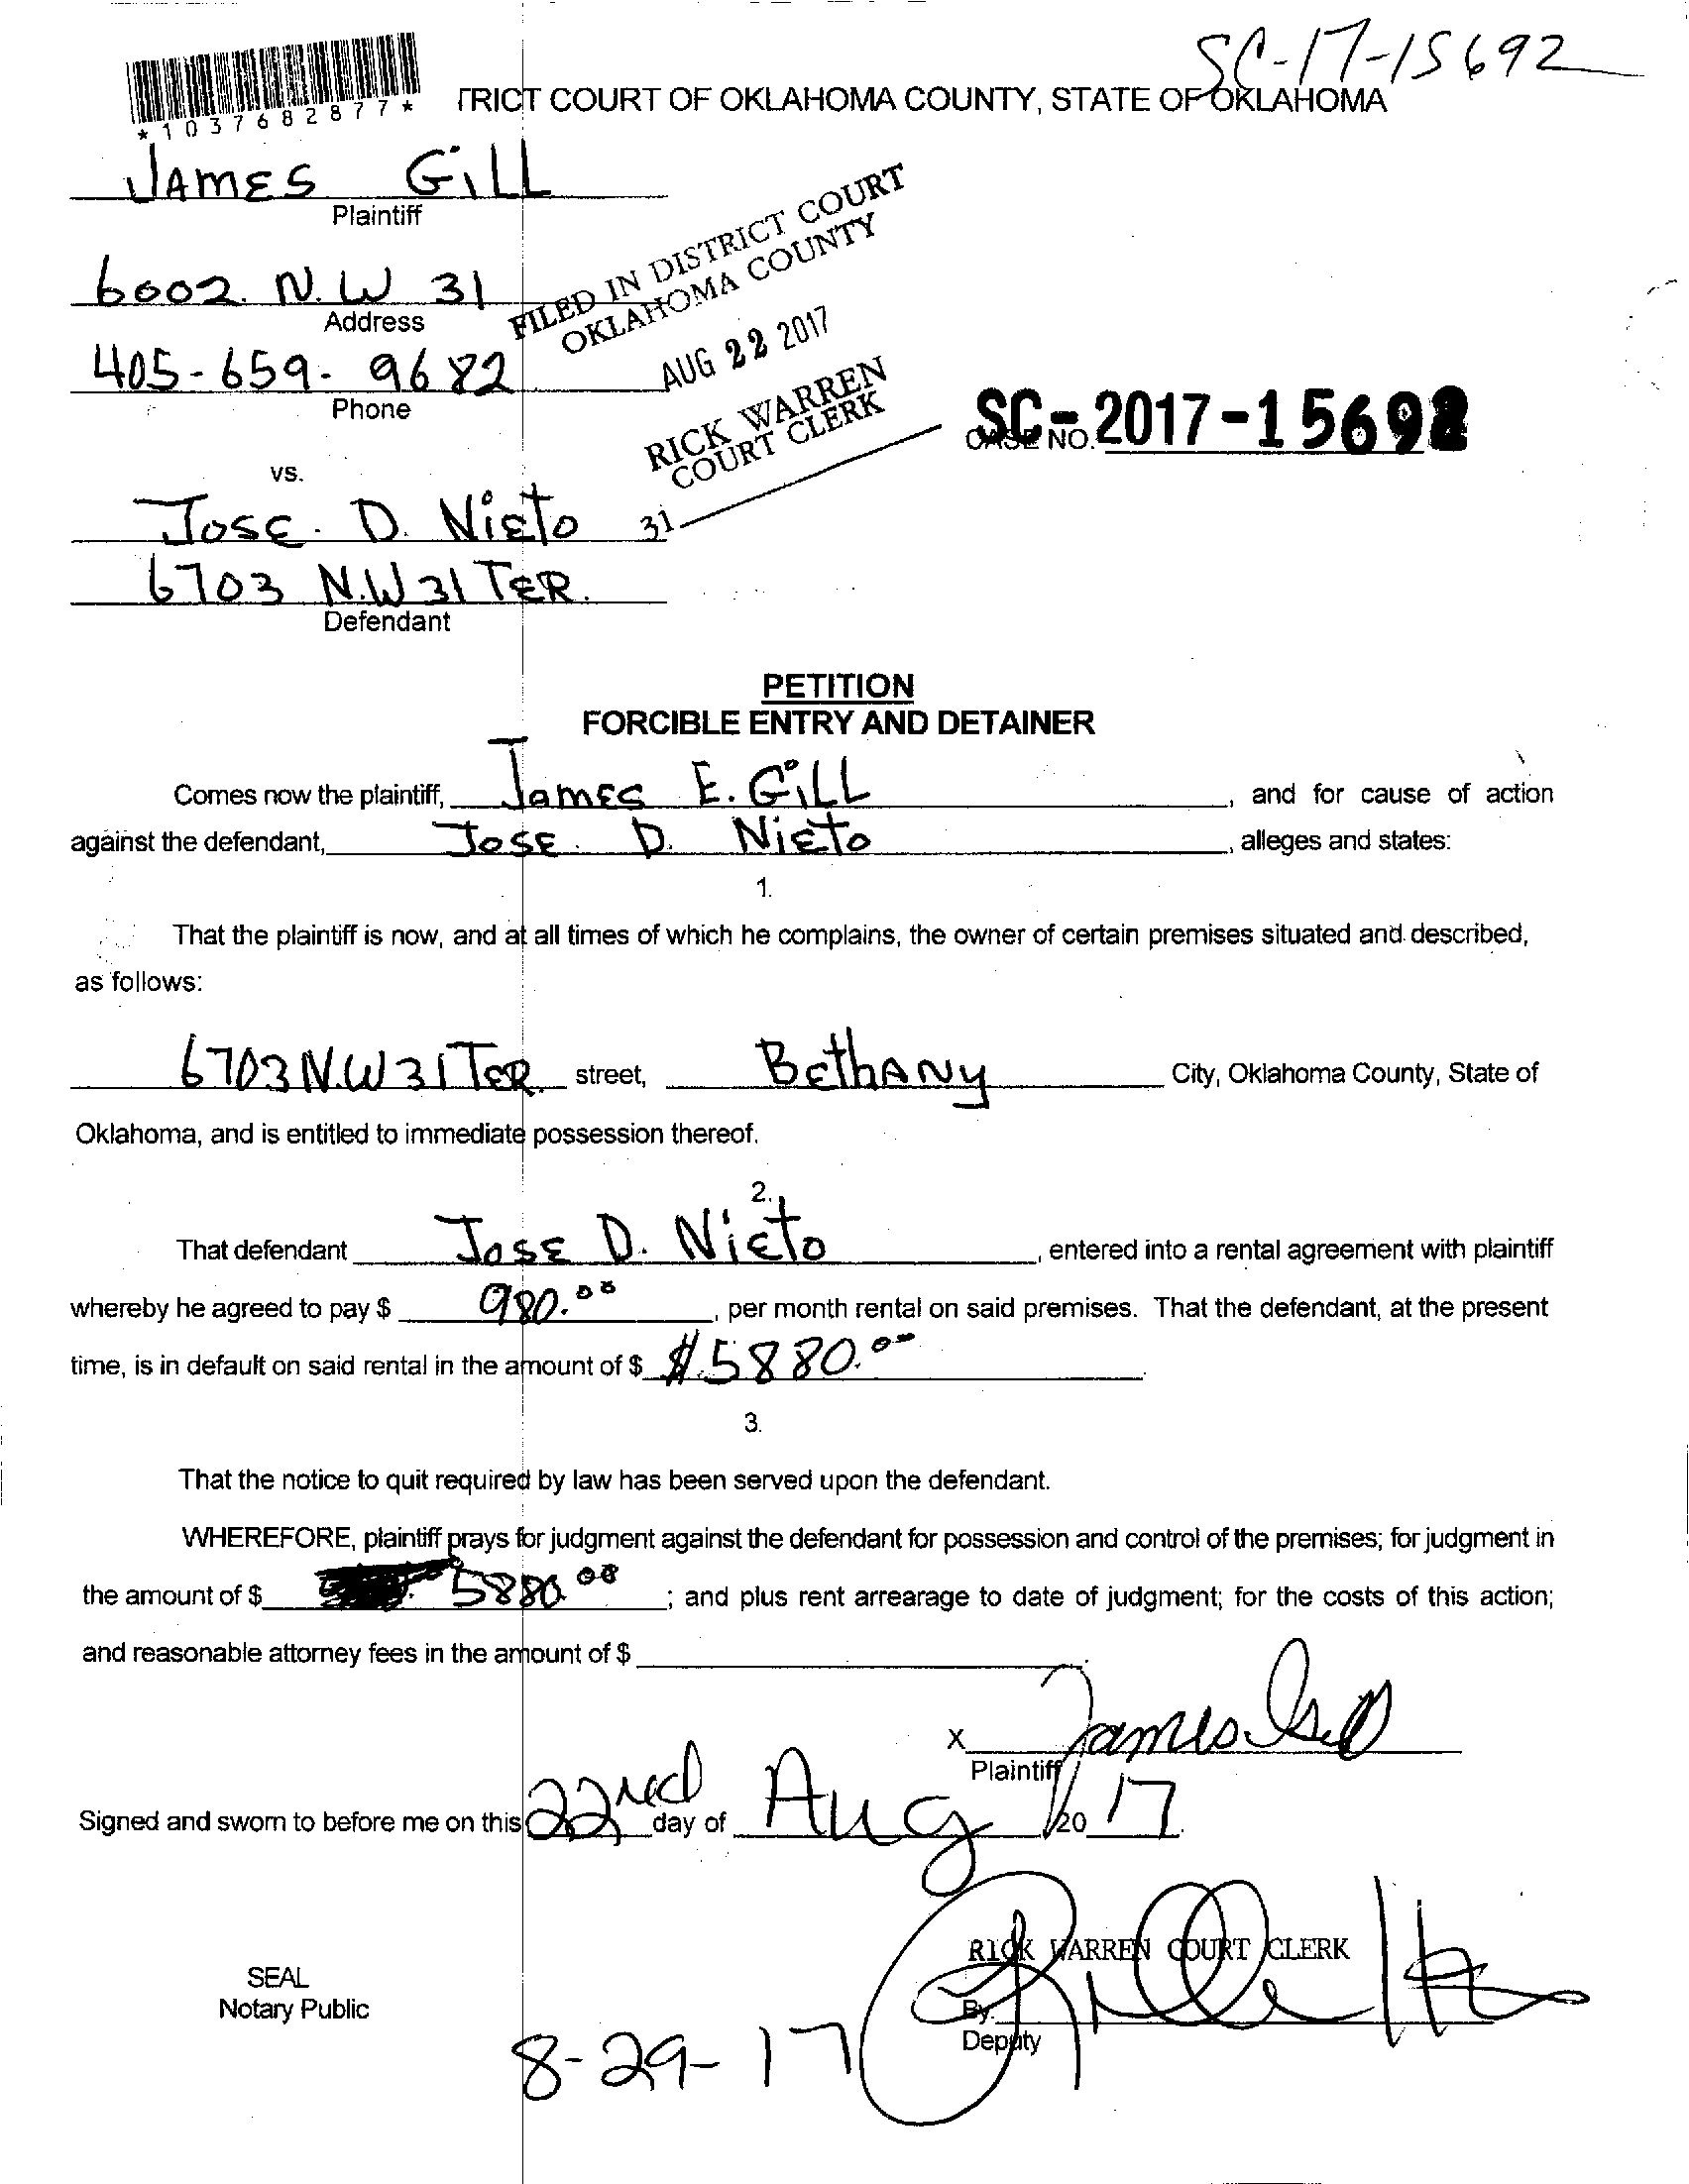 SC-17-15692
*1037682877*
TRICT COURT OF OKLAHOMA COUNTY, STATE OF OKLAHOMA
JAMES GiLL
Plaintiff
6002. N.W 31
Address
405-659-9682
Phone
FILED IN DISTRICT COURT
OKLAHOMA COUNTY
AUG 22 2017
RICK WARREN
COURT CLERK
31
SC-2017-15692
CASE NO.
vs.
Jose. D. Nieto
6703 N.W 31 TER.
Defendant
PETITION
FORCIBLE ENTRY AND DETAINER
Comes now the plaintiff, James E. GiLL, and for cause of action
against the defendant, Jose. D. Nieto, alleges and states:
1.
That the plaintiff is now, and at all times of which he complains, the owner of certain premises situated and described,
as follows:
6703 N.W 31 TER. street, BethANy City, Oklahoma County, State of
Oklahoma, and is entitled to immediate possession thereof.
2.
That defendant Jose D. Nieto, entered into a rental agreement with plaintiff
whereby he agreed to pay $ 980.00, per month rental on said premises. That the defendant, at the present
time, is in default on said rental in the amount of $ $.5880.00
3.
That the notice to quit required by law has been served upon the defendant.
WHEREFORE, plaintiff prays for judgment against the defendant for possession and control of the premises; for judgment in
the amount of $ 5880.00; and plus rent arrearage to date of judgment; for the costs of this action;
and reasonable attorney fees in the amount of $
X James Gill
Plaintiff
Signed and sworn to before me on this 22nd day of Aug, 20 17.
RICK WARREN COURT CLERK
SEAL
Notary Public
By:
Deputy
8-29-17